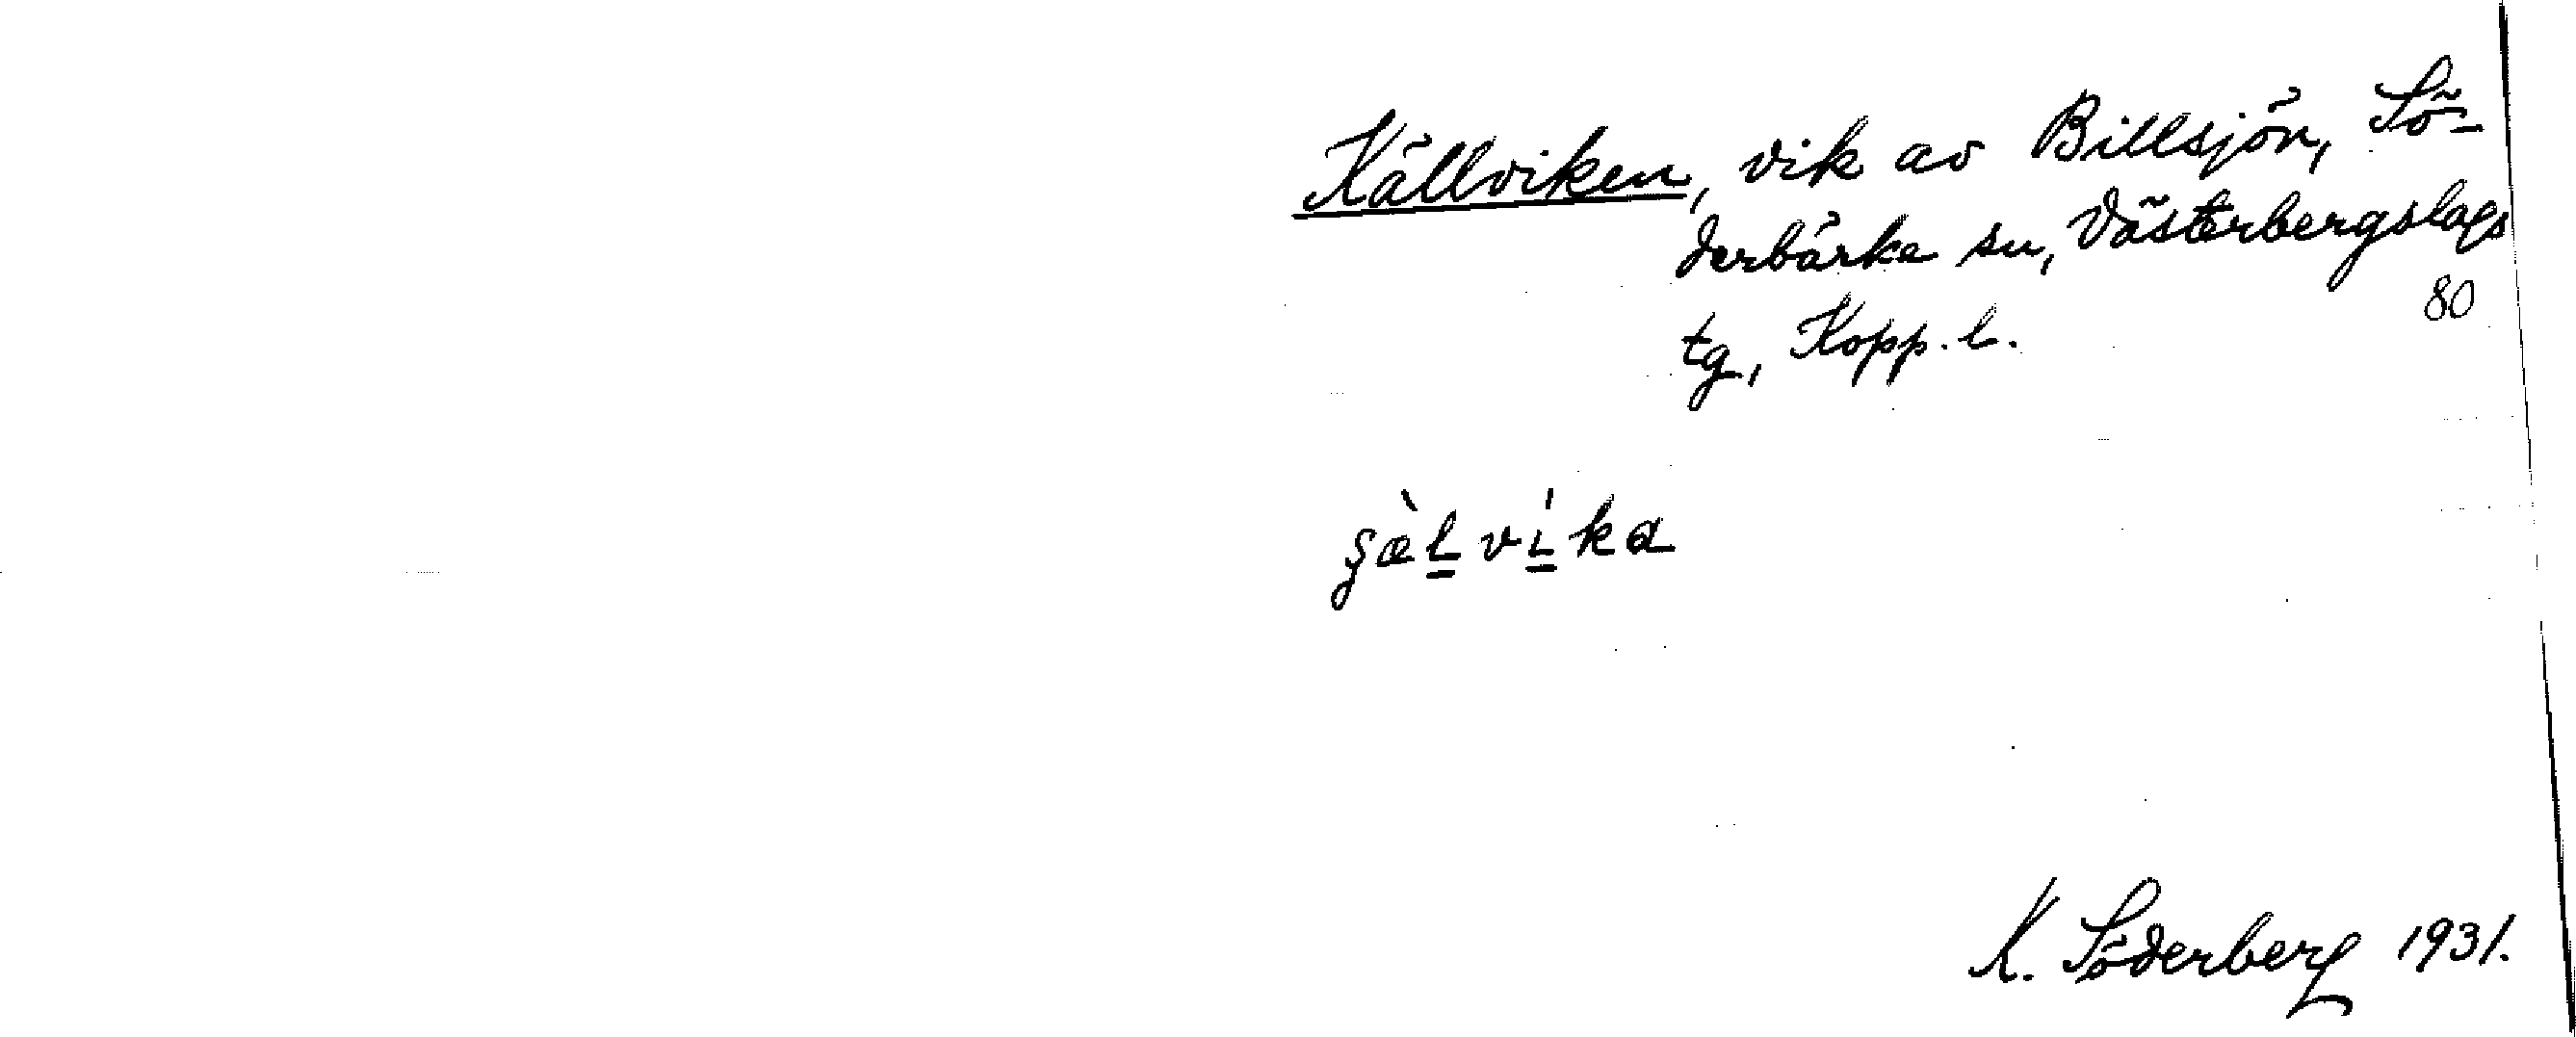 Källviken, vik av Billsjön, Sö-
derbärke sn, Västerbergslags
80
tg, Kopp. l.
ʂæ̀l̲ví̲ka
K. Söderberg 1931.